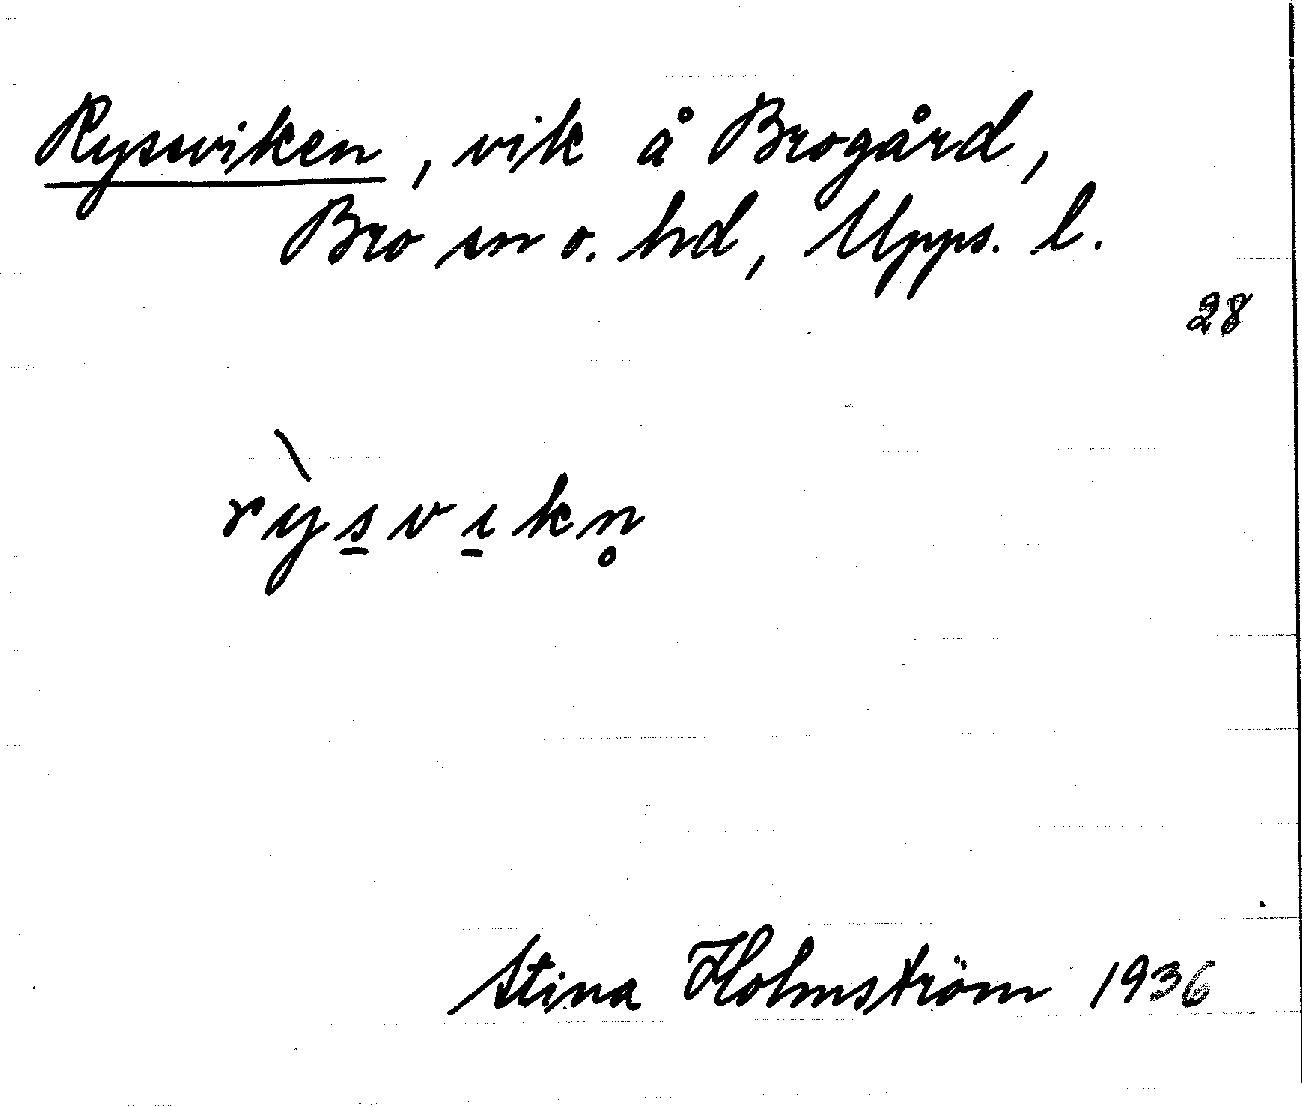 Ryssviken, vik å Brogård,
Bro sn o. hd, Upps. l.
28
rỳs̠vɩ̠kn̥
Stina Holmström 1936